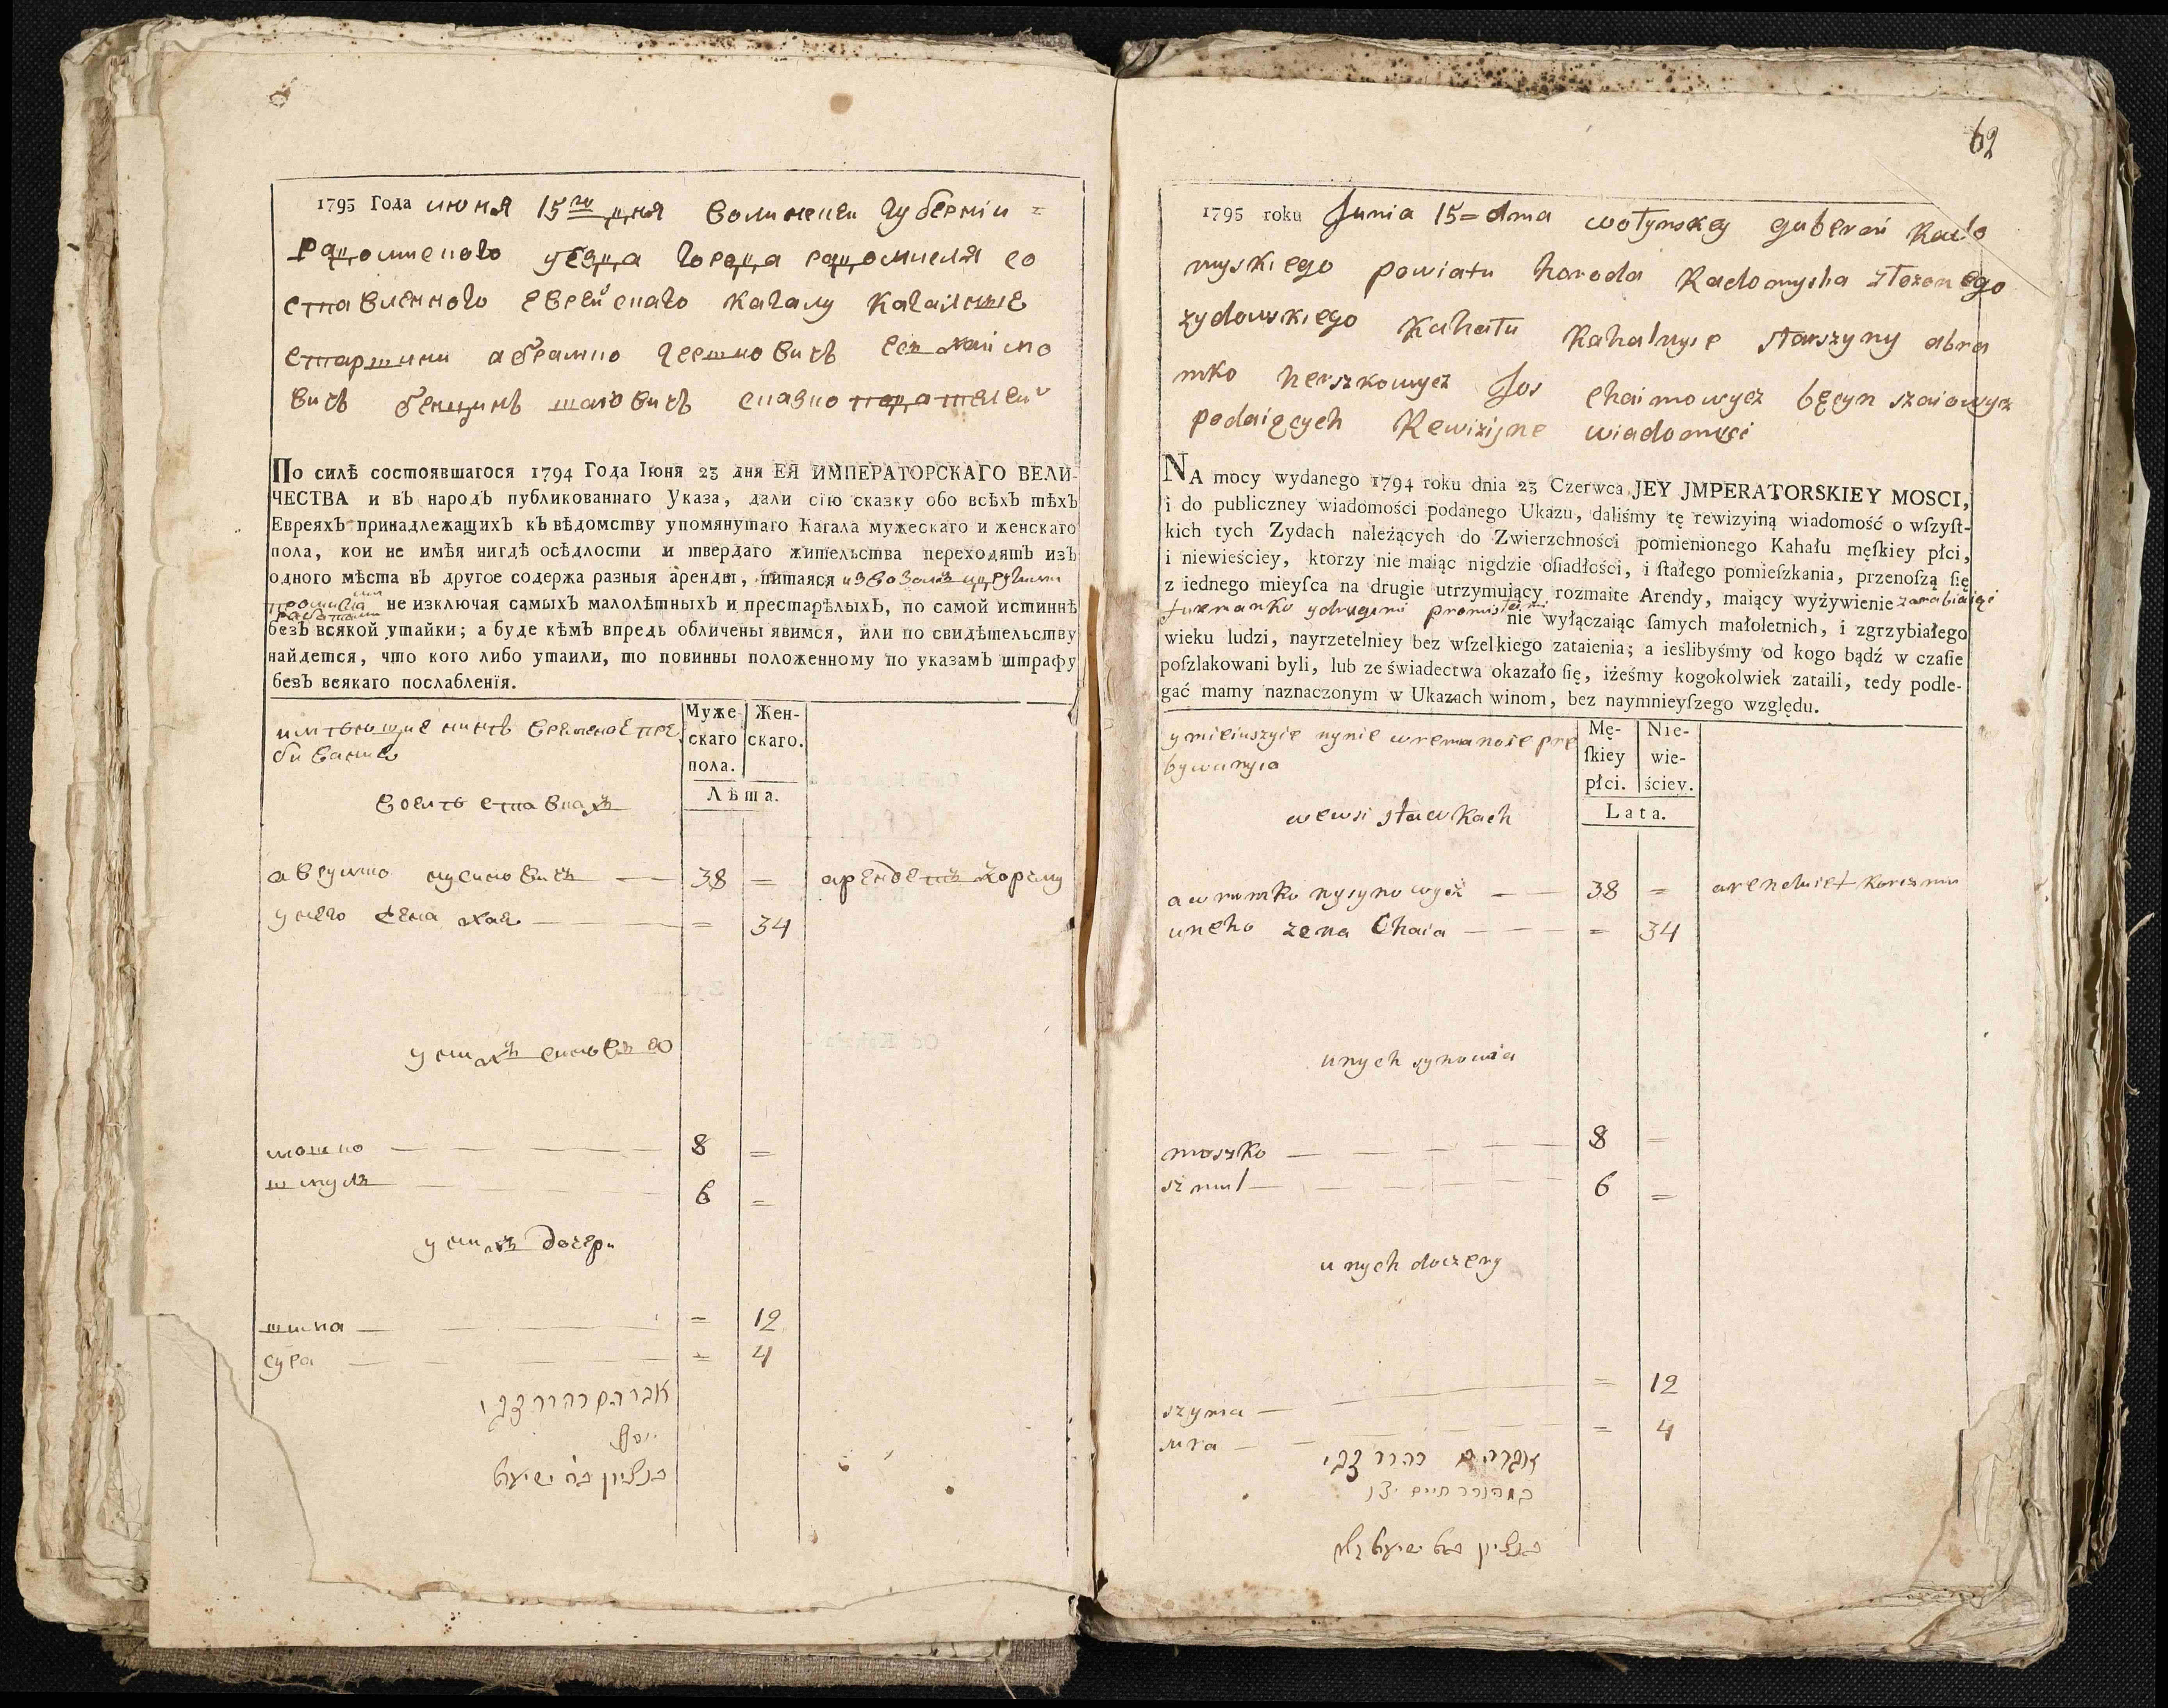 1795 Года июня 15го дня волинской губерніи =
радомиского уезда города радомисля со
ставленного еврейскаго кагалу кагалные
старшини абрамко гершковичъ иось хаімо
вичъ бенцинъ шаіовичъ сказко подателей
По силѣ состоявшагося 1794 Года Іюня 23 дня ЕЯ ИМПЕРАТОРСКАГО ВЕЛИ-
ЧЕСТВА и въ народъ публикованнаго Указа, дали сію сказку обо всѣхъ тѣхъ
Евреяхъ принадлежащихъ къ вѣдомству упомянутаго Кагала мужескаго и женскаго
пола, кои не имѣя нигдѣ осѣдлости и твердаго жительства переходятъ изъ
одного мѣста въ другое содержа разныя аренды, питаяся извозомъ и другими
не изключая самыхъ малолѣтныхъ и престарѣлыхъ, по самой истиннѣ
безъ всякой утайки; а буде кѣмъ впредь обличены явимся, или по свидѣтельству
найдется, что кого либо утаили, то повинны положенному по указамъ штрафу
безъ всякаго послабленїя.
имѣющие нинѣ временое пре
бивание
Муже-
скаго
пола.
Жен-
скаго.
Лѣта.
воселѣ ставкахъ
аврумко нусиновичъ — 38 = арендетъ корчму
унего жена хая — = 34
унихъ синовья
мошко — 8 =
шмуль — 6 =
унихъ дочери
шина — = 12
сура — = 4
אברהם בהרר צבי
יוסף
בנציון בה ישעי׳
62
1795 roku Junia 15= dnia wołynskey guberni Rado
myskiego powiatu horoda Radomysla złozonego
zydowskiego Kahału Kahalnyie starszyny abra
mko herszkowycz Jos chaimowycz bęcyn szaiowycz
podaiących Rewizijne wiadomosci
NA mocy wydanego 1794 roku dnia 23 Czerwca JEY JMPERATORSKIEY MOSCI,
i do publiczney wiadomości podanego Ukazu, daliśmy tę rewizyiną wiadomość o wſzyſt-
kich tych Zydach należących do Zwierzchności pomienionego Kahału męſkiey płci,
i niewieściey, ktorzy nie maiąc nigdzie oſiadłości, i ſtałego pomieſzkania, przenoſzą ſię
z iednego mieyſca na drugie utrzymuiący rozmaite Arendy, maiący wyżywienie zarabiaiąc
furmanko ydrugimi promisłami nie wyłączaiąc ſamych małoletnich, i zgrzybiałego
wieku ludzi, nayrzetelniey bez wſzelkiego zataienia; a ieślibyśmy od kogo bądź w czaſie
poſzlakowani byli, lub ze świadectwa okazało ſię, iżeśmy kogokolwiek zataili, tedy podle-
gać mamy naznaczonym w Ukazach winom, bez naymnieyſzego względu.
ymieiuszyie nynie wremanoie pre
bywanyia
Mę-
ſkiey
płci.
Nie-
wie-
ściey.
Lata.
wewsi stawkach
awrumko nysynowycz — 38 = arenduiet korczmu
uneho zena Chaia — = 34
unych synowia
moszko — 8 =
szmul — 6 =
unych doczery
szyna — = 12
sura — = 4
אברהם בהרר צבי
במהורר חיים
בנציון